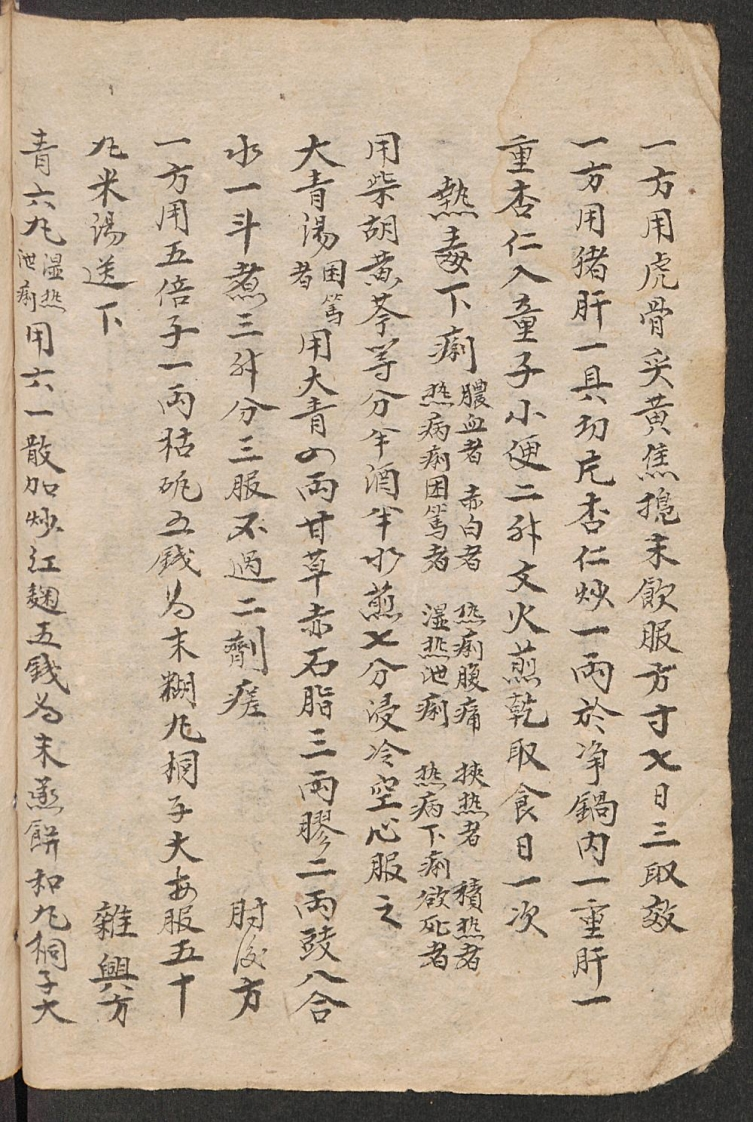 一方用虎骨炙黄焦搗末飲服方寸匕日三取效
一方用猪肝一具切片杏仁炒一両於净鍋内一重肝一
重杏仁入童子小便二升文火煎乾取食日一次
熱毒下痢 膿血者 赤白者 热痢腹痛 挾热者 積热者
热病痢困篤者 湿热泄痢 热病下痢欲死者
用柴胡黄芩等分半酒半水煎七分浸冷空心服之
大青湯 困篤者 用大青四両甘草赤石脂三両膠二両豉八合
水一斗煮三升分三服不過二劑瘥 肘後方
一方用五倍子一両枯矾五銭为末糊丸桐子大每服五十
丸米湯送下 雜興方
青六丸 湿热泄痢 用六一散加炒红麹五銭为末蒸餅和丸桐子大